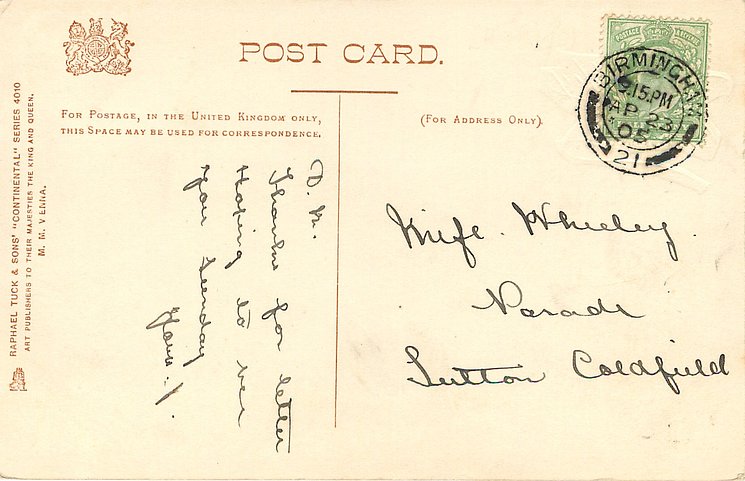 POST CARD.
FOR POSTAGE, IN THE UNITED KINGDOM ONLY,
THIS SPACE MAY BE USED FOR CORRESPONDENCE.
(FOR ADDRESS ONLY).
RAPHAEL TUCK & SONS' "CONTINENTAL" SERIES 4010
ART PUBLISHERS TO THEIR MAJESTIES THE KING AND QUEEN.
M. M. VIENNA.
BIRMINGHAM
5.15.PM
AP 23
05
21
D. M.
Thanks for letter
Hoping to see
you Sunday
Miss. Wheeley.
Parade
Sutton Coldfield